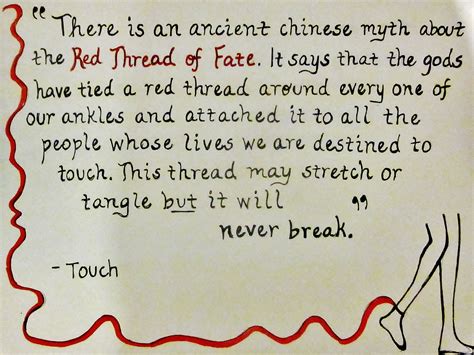 "There is an ancient chinese myth about
the Red Thread of Fate. It says that the gods
have tied a red thread around every one of
our ankles and attached it to all the
people whose lives we are destined to
touch. This thread may stretch or
tangle but it will
never break."
- Touch